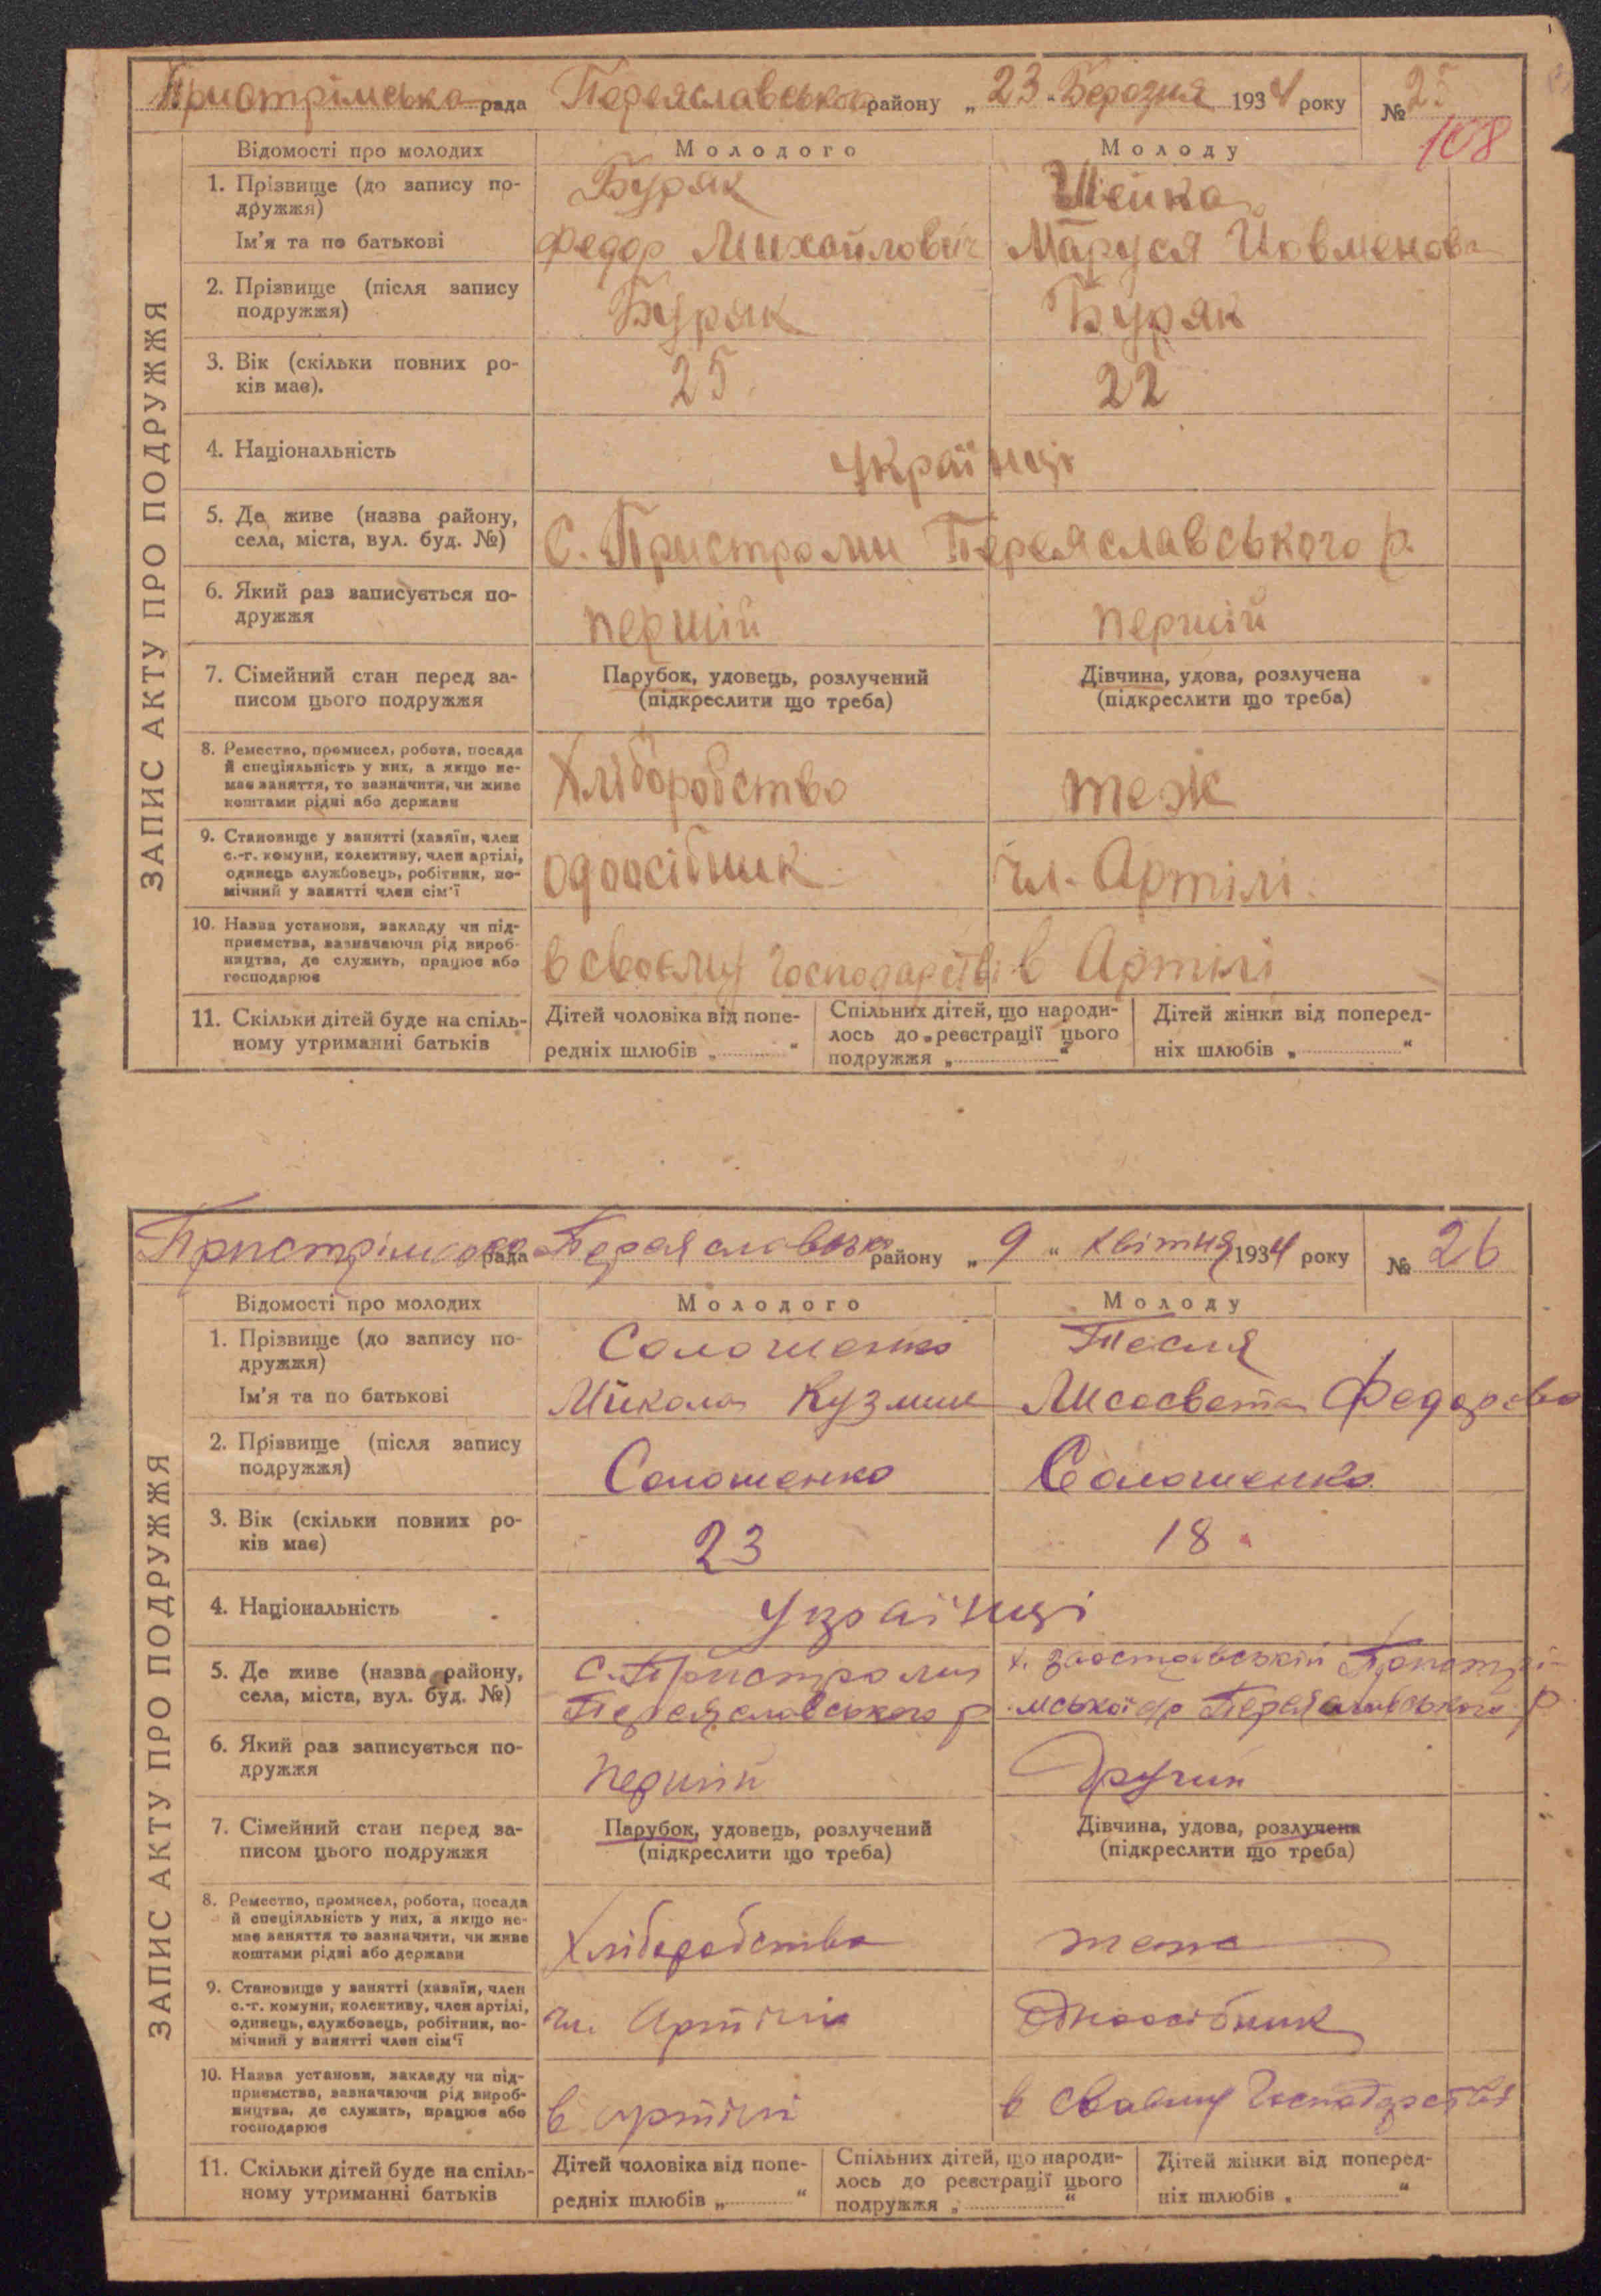 Пристрімська рада Переяславського району „ 23 “ Березня 1934 року № 25
108
ЗАПИС АКТУ ПРО ПОДРУЖЖЯ
Відомості про молодих Молодого Молоду
1. Прізвище (до запису по- Буряк Шейка
дружжя)
Ім'я та по батькові Федор Михайлович Маруся Йовменова
2. Прізвище (після запису Буряк Буряк
подружжя)
3. Вік (скільки повних ро- 25 22
ків має).
4. Національність українці
5. Де живе (назва району,
села, міста, вул. буд. №) С. Пристроми Переяславського р.
6. Який раз записується по- першій першій
дружжя
7. Сімейний стан перед за- Парубок, удовець, розлучений Дівчина, удова, розлучена
писом цього подружжя (підкреслити що треба) (підкреслити що треба)
8. Ремество, промисел, робота, посада
й спеціяльність у них, а якщо не-
має заняття, то зазначити, чи живе Хліборобство теж
коштами рідні або держави
9. Становище у занятті (хазяїн, член
с.-г. комуни, колективу, член артілі,
одинець службовець, робітник, по- одоосібник чл. Артілі.
мічний у занятті член сім'ї
10. Назва установи, закладу чи під-
приємства, зазначаючи рід вироб-
ництва, де служить, працює або в своєму господарстві в Артілі
господарює
11. Скільки дітей буде на спіль- Дітей чоловіка від попе- Спільних дітей, що народи- Дітей жінки від поперед-
ному утриманні батьків редніх шлюбів „ “ лось до реєстрації цього ніх шлюбів „ “
подружжя „ “
Пристрімська рада Переяславська району „ 9 “ квітня 1934 року № 26
ЗАПИС АКТУ ПРО ПОДРУЖЖЯ
Відомості про молодих Молодого Молоду
1. Прізвище (до запису по- Солошенко Тесля
дружжя)
Ім'я та по батькові Микола Кузмич Лисавета Федорова
2. Прізвище (після запису Солошенко Солошенко
подружжя)
3. Вік (скільки повних ро- 23 18
ків має)
4. Національність українці
5. Де живе (назва району, с. Пристроми х. Заоставській Пристрі-
села, міста, вул. буд. №) Переяславського р мської с/р Переяславського р
6. Який раз записується по- першій другий
дружжя
7. Сімейний стан перед за- Парубок, удовець, розлучений Дівчина, удова, розлучена
писом цього подружжя (підкреслити що треба) (підкреслити що треба)
8. Ремество, промисел, робота, посада
й спеціяльність у них, а якщо не-
має заняття то зазначити, чи живе Хліборобство
коштами рідні або держави
9. Становище у занятті (хазяїн, член
с.-г. комуни, колективу, член артілі,
одинець, службовець, робітник, по- чл. Артілі Одноосібник
мічний у занятті член сім'ї
10. Назва установи, закладу чи під-
приємства, зазначаючи рід вироб-
ництва, де служить, працює або в артілі в своєму господарстві
господарює
11. Скільки дітей буде на спіль- Дітей чоловіка від попе- Спільних дітей, що народи- Дітей жінки від поперед-
ному утриманні батьків редніх шлюбів „ “ лось до реєстрації цього ніх шлюбів „ “
подружжя „ “